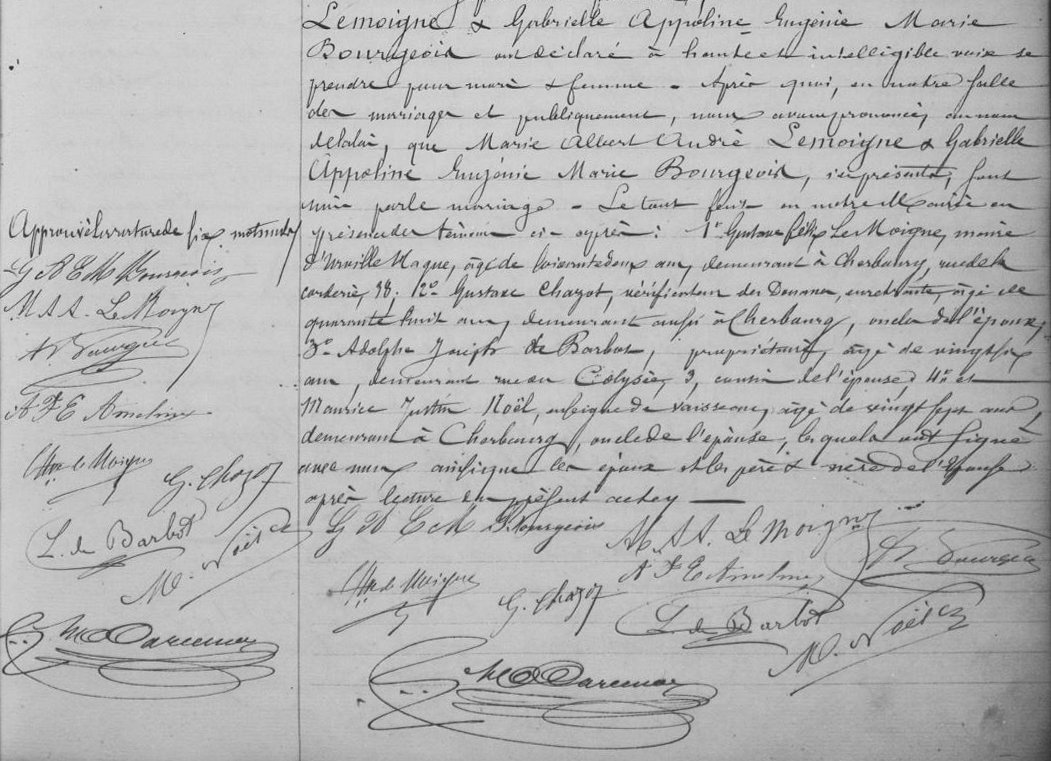 Lemoigne & Gabrielle Appoline Eugénie Marie
Bourgeois ont déclaré à haute et intelligible voix se
prendre pour mari & femme - Après quoi, en notre salle
des mariages et publiquement, nous avons prononcé, au nom
de la loi, que Marie Albert André Lemoigne & Gabrielle
Appoline Eugénie Marie Bourgeois, ici présents, sont
unis par le mariage - Le tout fait en notre Mairie en
présence des témoins ci-après: 1° Gustave Félix Le Moigne, maire
d'Urville Hague, âgé de soixante deux ans, demeurant à Cherbourg, rue de la
corderie, 38. 2° Gustave Chazot, vérificateur des Douanes, en retraite, âgé de
quarante huit ans, demeurant aussi à Cherbourg, oncles de l'époux,
3° Adolphe Joseph de Barbot, propriétaire, âgé de vingt six
ans, demeurant rue du Colysée, 3, cousin de l'épouse, 4° et
Maurice Justin Noël, enseigne de vaisseau, âgé de vingt sept ans,
demeurant à Cherbourg, oncle de l'épouse, lesquels ont signé
avec nous ainsi que les époux et les père & mère de l'épouse
après lecture du présent acte
Approuvé la rature de six mots nuls
G A E M Bourgeois
M. A. A. Le Moigne
A F E Amelin
G. Chazot
L. de Barbot
M. Noël
G A E M Bourgeois
M. A. A. Le Moigne
A F E Amelin
G. Chazot
L. de Barbot
M. Noël